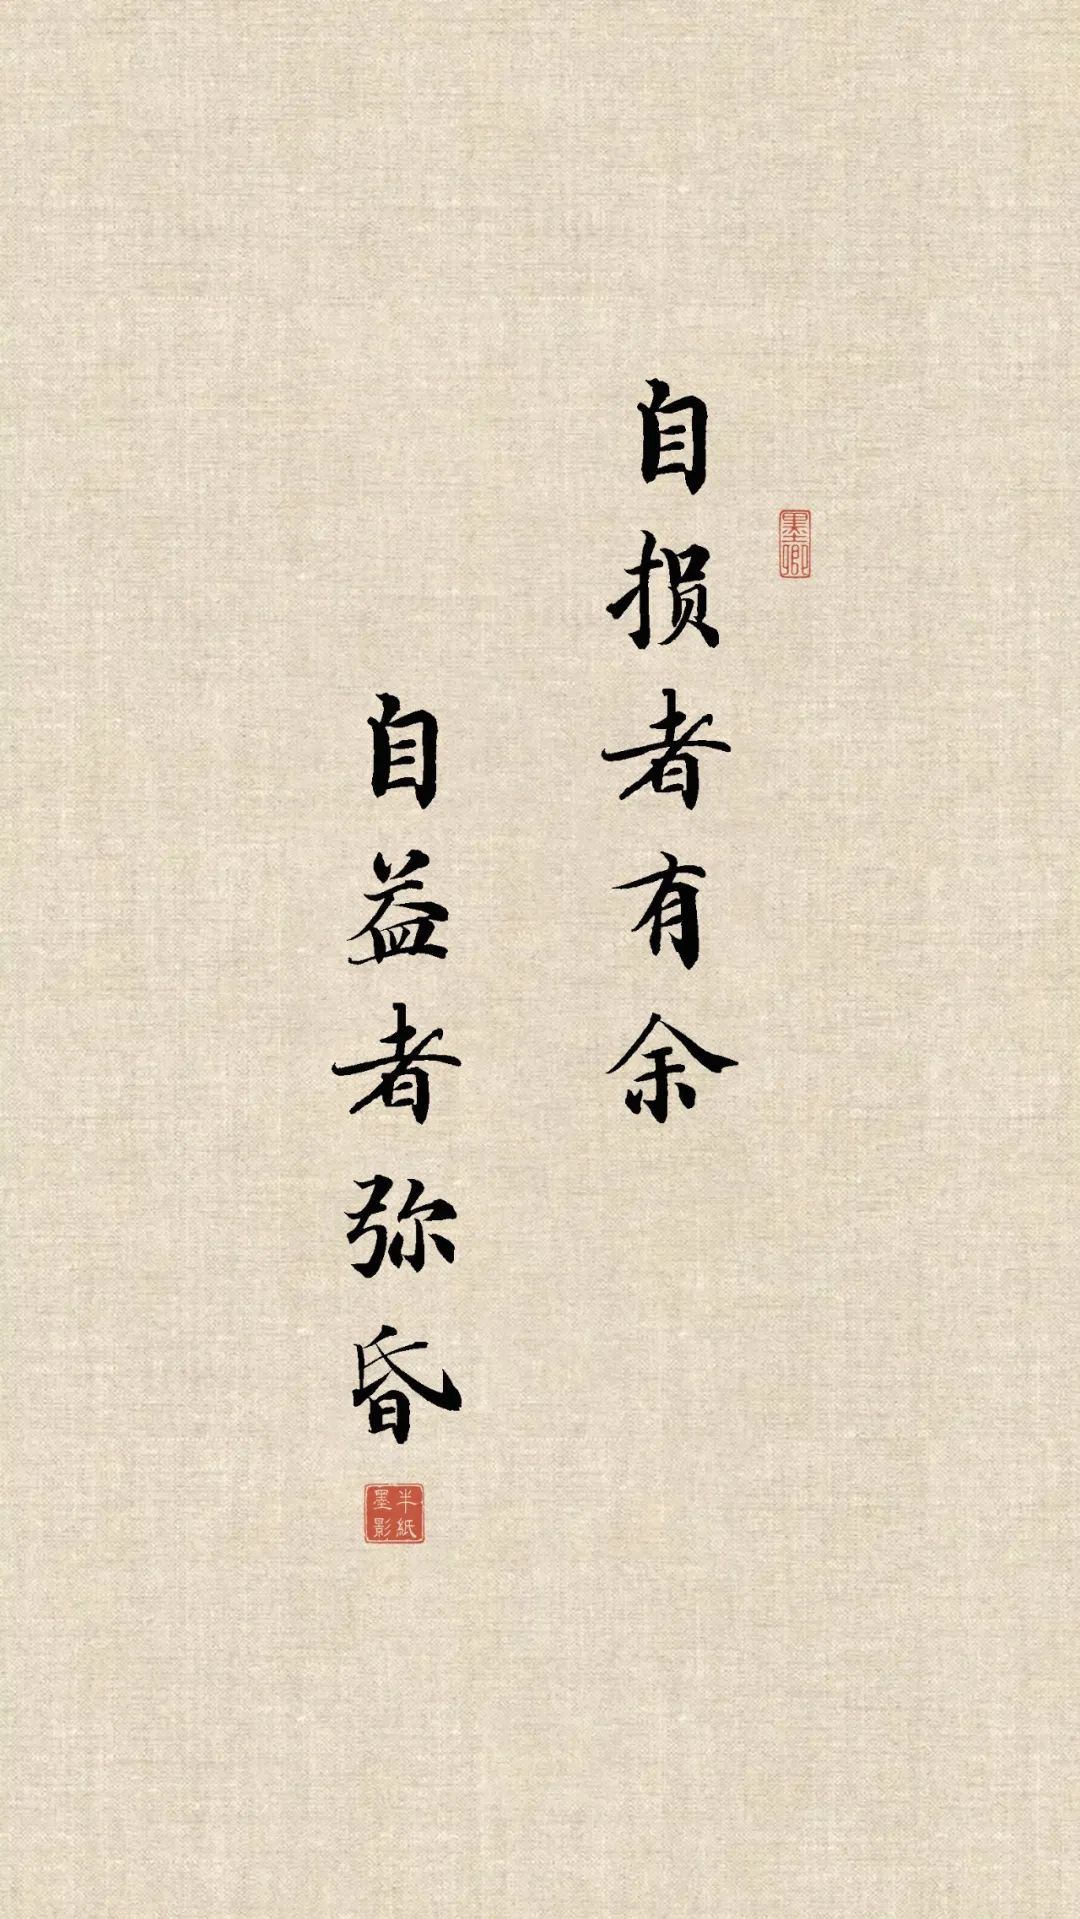 自损者有余
自益者弥昏
墨卿
半紙
墨影